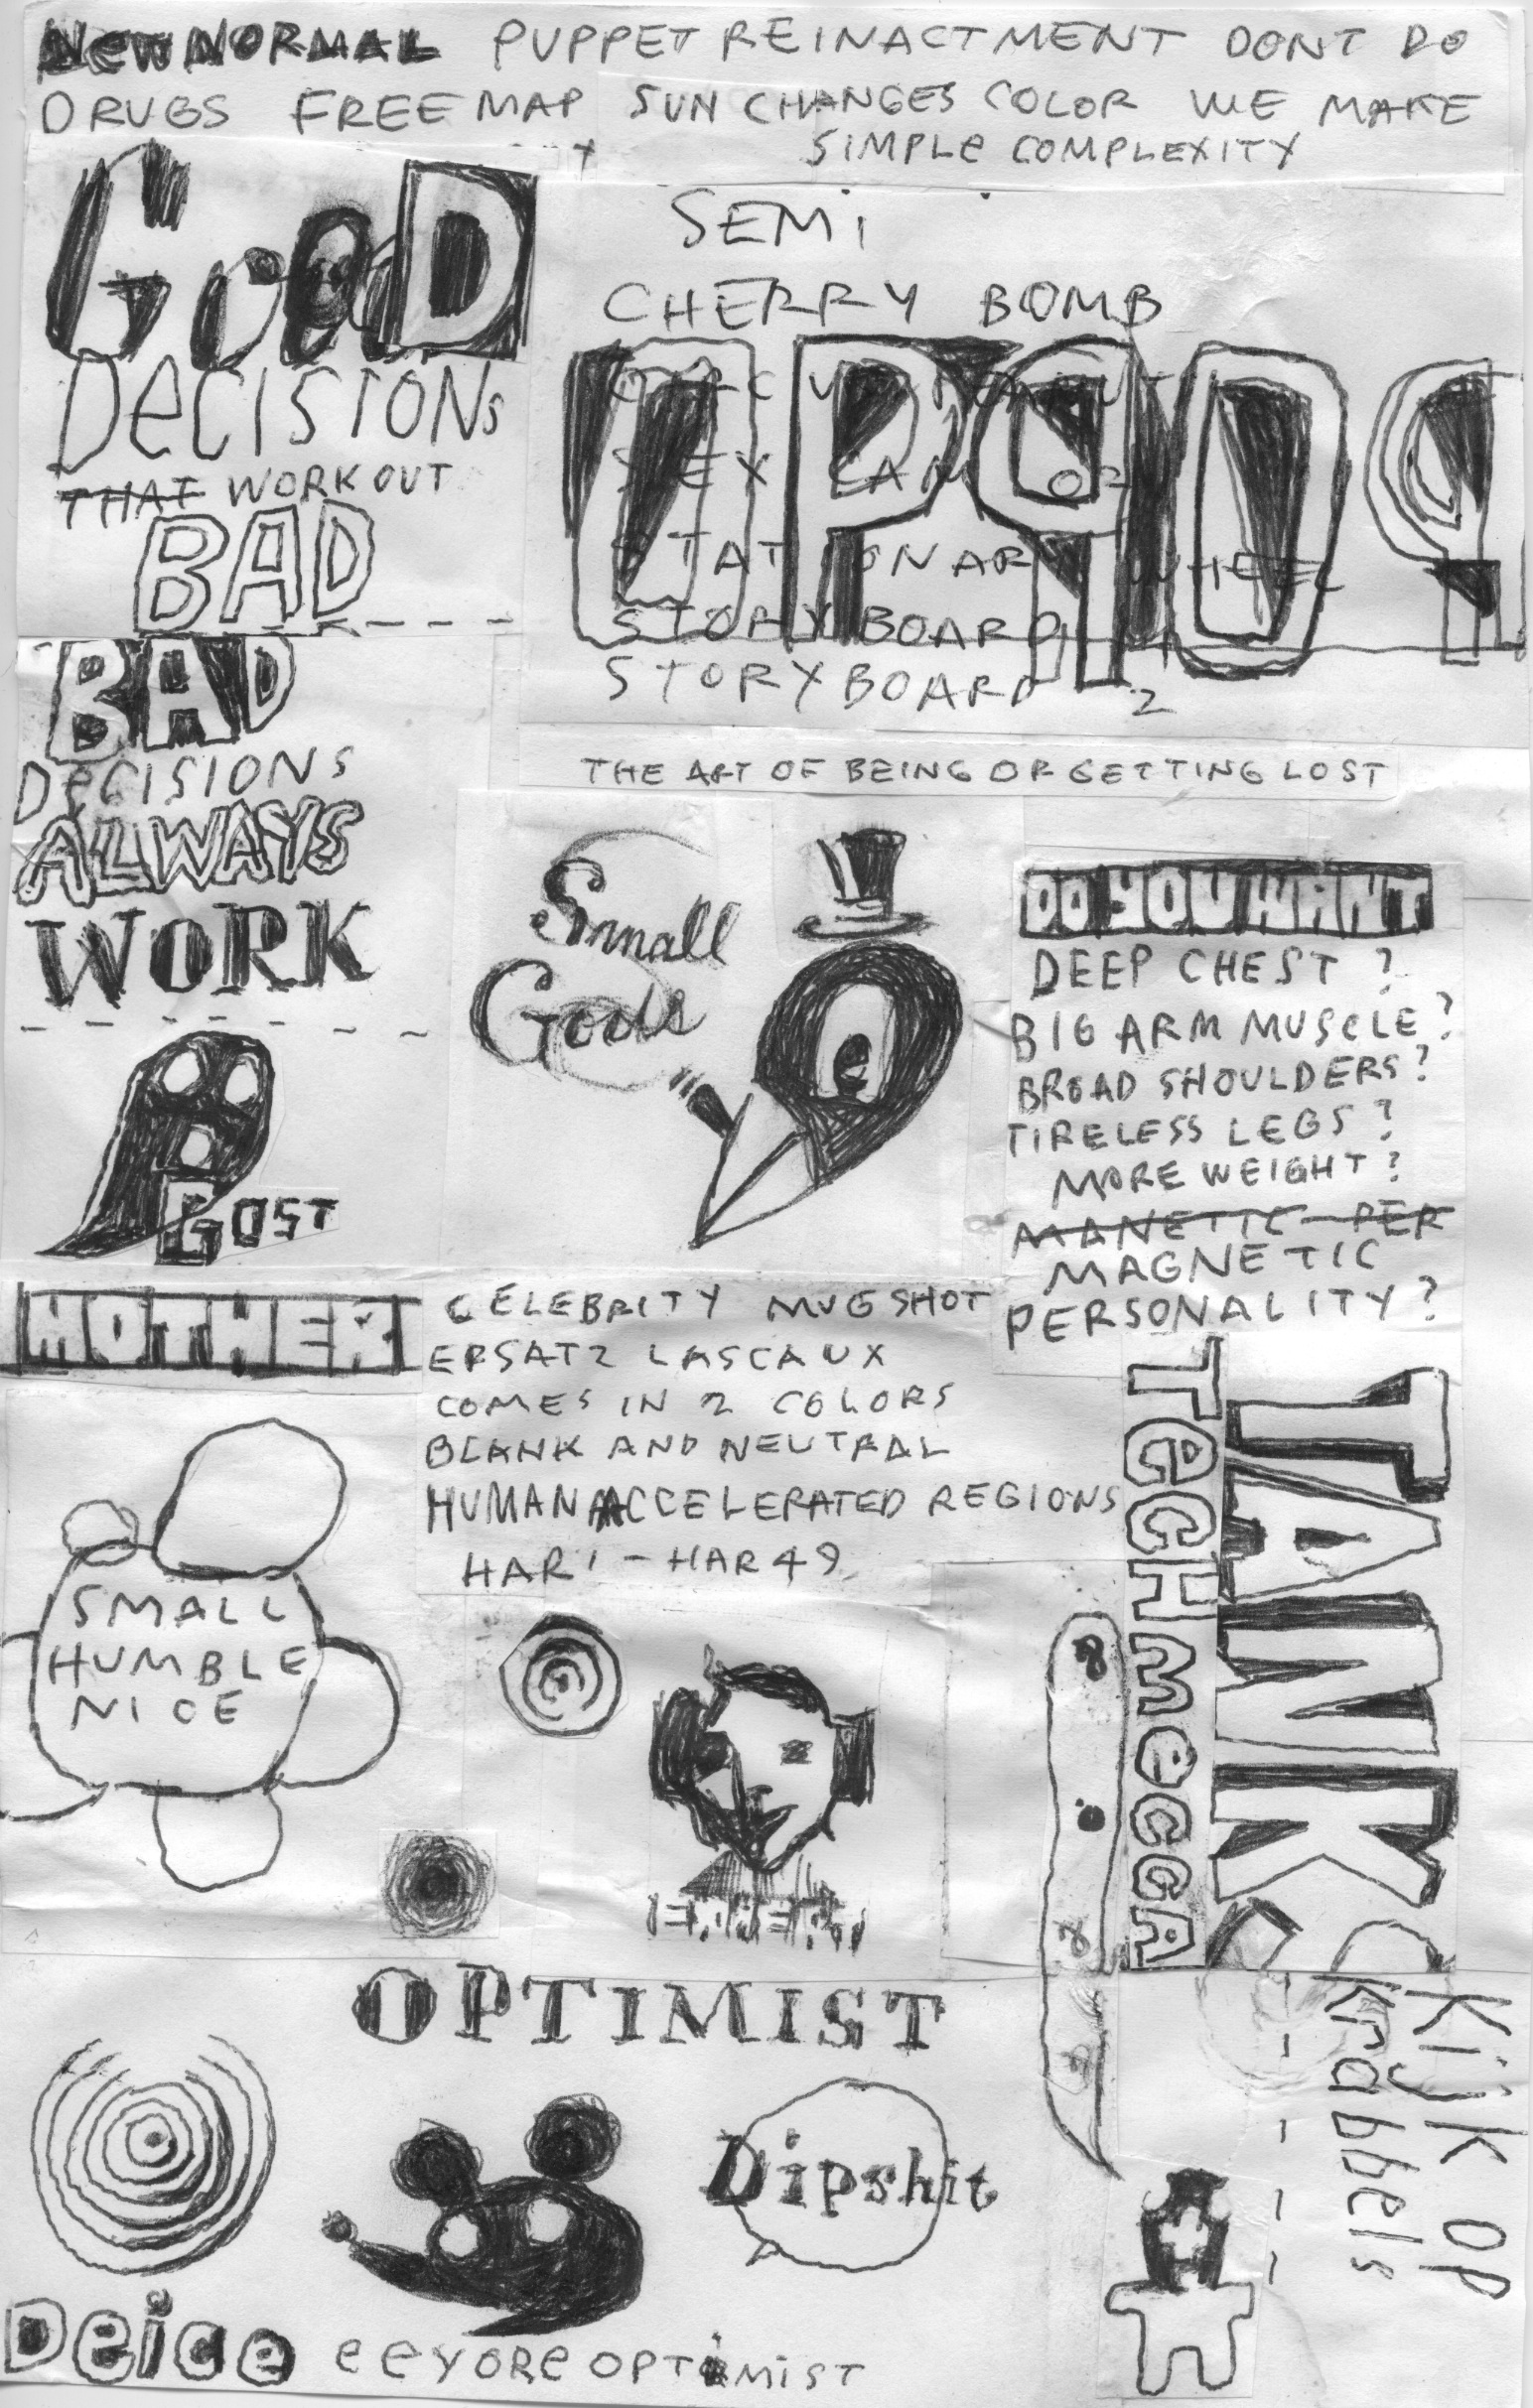 NEW NORMAL PUPPET REINACTMENT DONT DO
DRUGS FREE MAP SUN CHANGES COLOR WE MAKE
SIMPLE COMPLEXITY
GOOD
DECISIONS
THAT WORK OUT
BAD
SEMI
CHERRY BOMB
STATIONARY WHEEL
STORYBOARD 1
STORYBOARD 2
BAD
DECISIONS
ALWAYS
WORK
THE ART OF BEING OR GETTING LOST
Small
Gods
DO YOU WANT
DEEP CHEST ?
BIG ARM MUSCLE?
BROAD SHOULDERS?
TIRELESS LEGS?
MORE WEIGHT?
MANETIC PER
MAGNETIC
PERSONALITY?
GOST
MOTHER
CELEBRITY MUGSHOT
ERSATZ LASCAUX
COMES IN 2 COLORS
BLANK AND NEUTRAL
HUMAN ACCELERATED REGIONS
HAR1 - HAR49
SMALL
HUMBLE
NICE
TeCHmeccA
TANK
Kijk op
Krabbels
OPTIMIST
Dipshit
Deice eeyore OPTiMIST